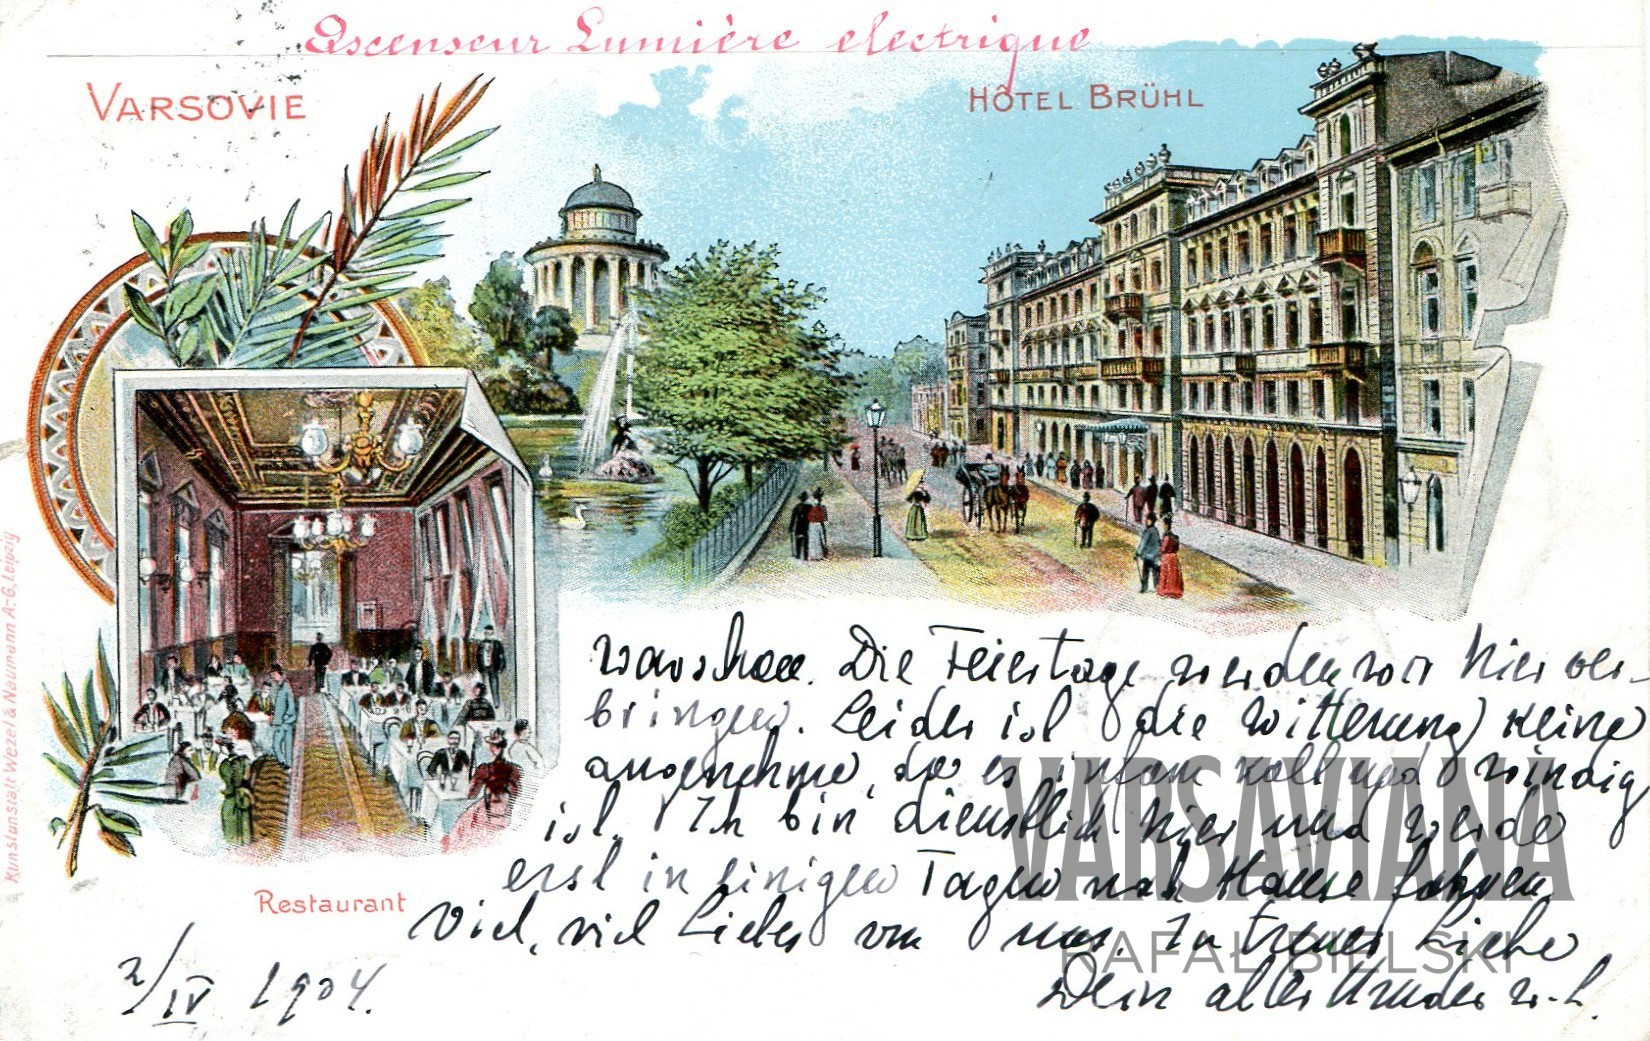 Ascenseur Lumière electrique
VARSOVIE
HÔTEL BRÜHL
Warschau. Die Feiertage werden wir hier ver-
bringen. Leider ist die Witterung keine
angenehme, da es infam kalt und windig
ist. Ich bin dienstlich hier und werde
erst in einigen Tagen nach Hause fahren
Viel, viel Liebes von uns In treuer Liebe
Dein alter
2/IV 1904.
Restaurant
Kunstanstalt Wezel & Naumann A.-G., Leipzig
VARSAVIANA
RAFAŁ BIELSKI